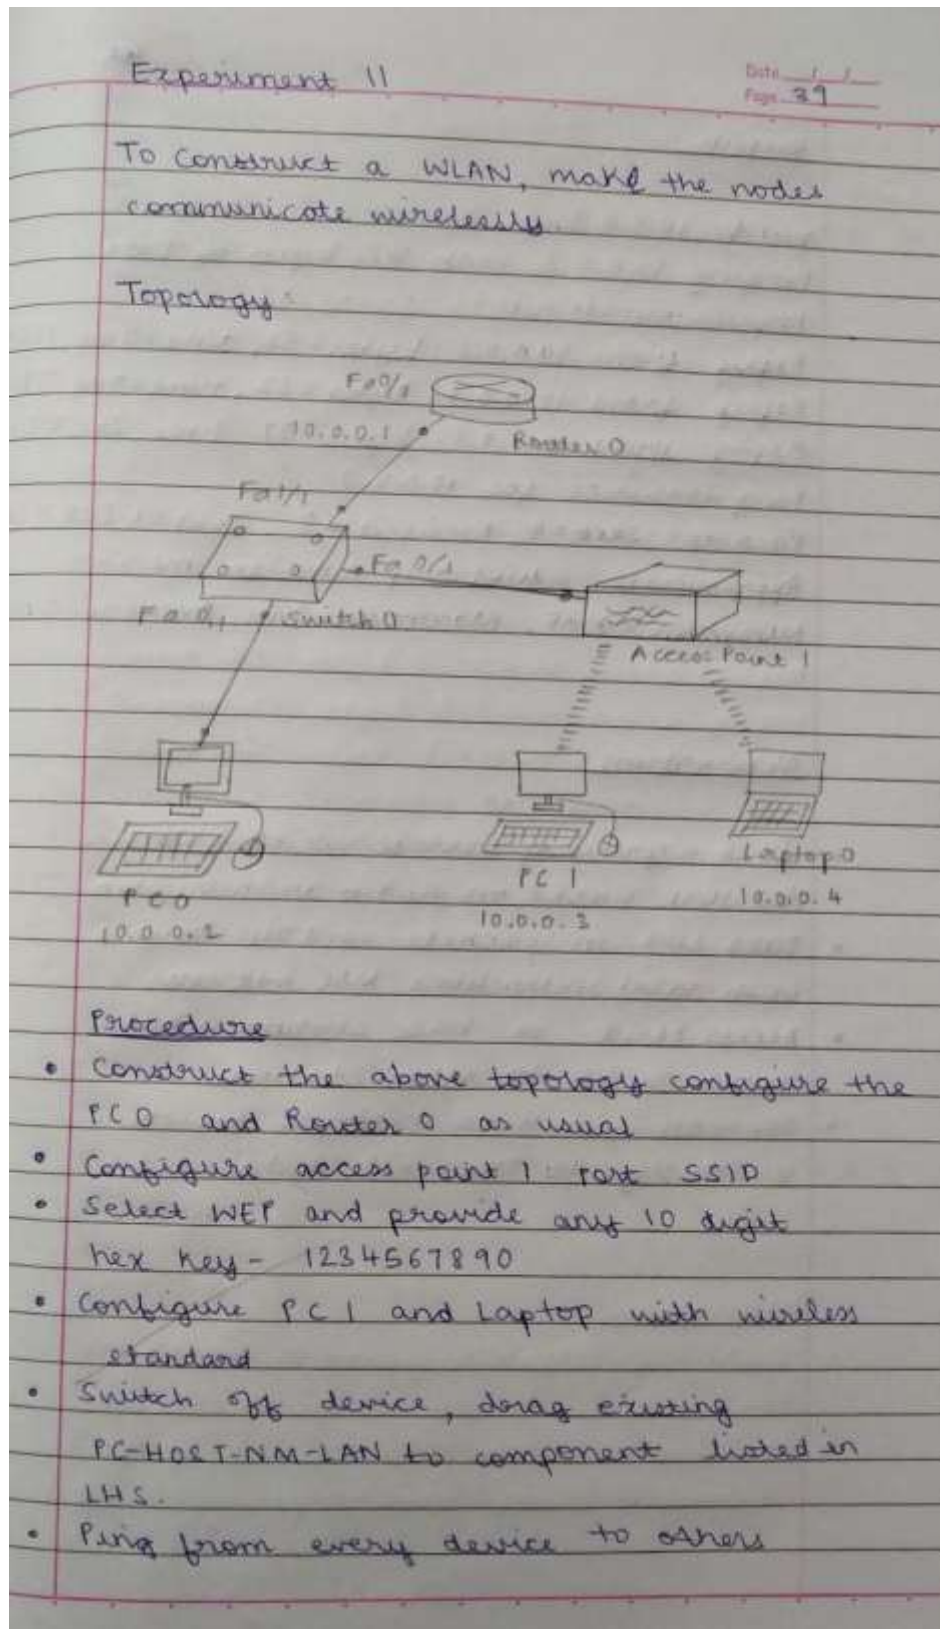 Experiment 11
Date / /
Page 39
To construct a WLAN, make the nodes
communicate wirelessly
Topology
Fa0/1
10.0.0.1
Router 0
Fa1/1
Fa 0/1
Fa 0/1
Switch 0
Access Point 1
PC 0
10.0.0.2
PC 1
10.0.0.3
Laptop 0
10.0.0.4
Procedure
• Construct the above topology configure the
PC 0 and Router 0 as usual
• Configure access point 1 : Port SSID
• Select WEP and provide any 10 digit
hex key - 1234567890
• Configure PC 1 and Laptop with wireless
standard
• Switch off device, drag existing
PC-HOST-NM-LAN to component listed in
LHS.
• Ping from every device to others